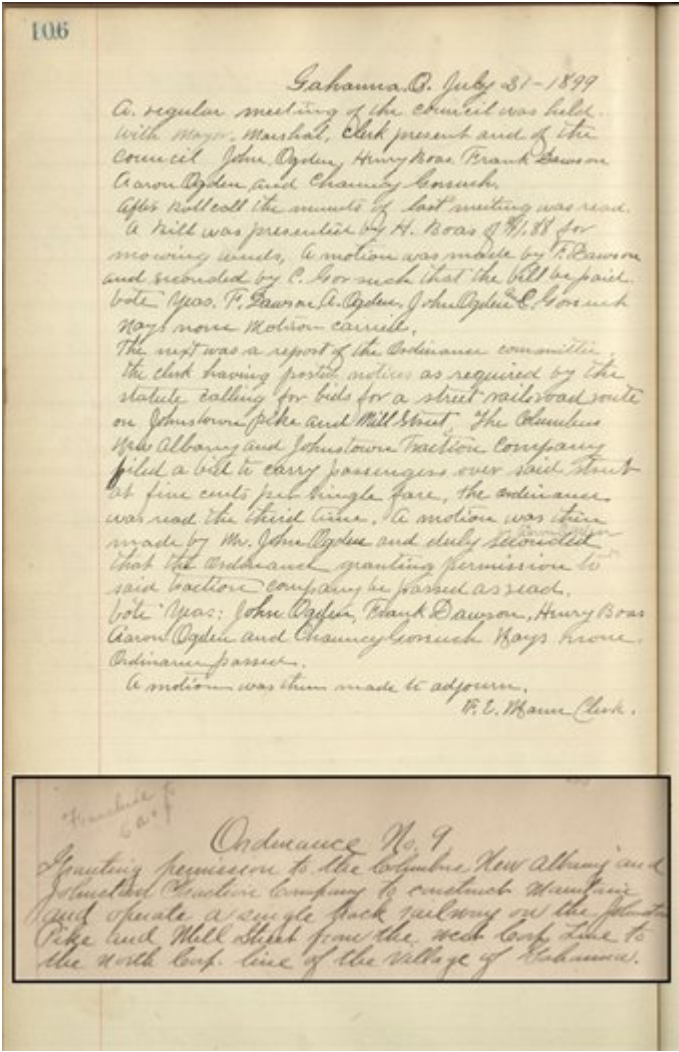 106
Gahanna, O. July 31-1899
A. regular meeting of the council was held.
With Mayor, Marshal, Clerk present and of the
council John Ogden, Henry Boas Frank Dawson
Aaron Ogden, and Chauncy Gorsuch.
After Roll call the minuts of last meeting was read.
A bill was presented by H. Boas of $1.88 for
mowing weeds, A motion was made by F. Dawson
and seconded by C. Gorsuch that the bill be paid.
Vote Yeas. F. Dawson, A. Ogden, John Ogden & C. Gorsuch
Nays none Motion carried.
The next was a report of the Ordinance committee.
the clerk having posted notices as required by the
statute calling for bids for a street railroad route
on Johnstown pike and Mill Street, The Columbus
New Albany and Johnstown Traction Company
filed a bid to carry passengers over said street
at five cents per single fare, the ordinance
was read the third time. A motion was then
made by Mr. John Ogden and duly seconded
that the Ordinance granting permission to
said traction company be passed as read.
Vote Yeas: John Ogden, Frank Dawson, Henry Boas
Aaron Ogden and Chauncy Gorsuch Nays none.
Ordinance passed.
A motion was then made to adjourn.
Mann Clerk.
Ordinance No. 9
Granting permission to the Columbus, New Albany and
Johnstown Traction Company to construct Maintain
and operate a single track railway on the
Pike and Mill Street from the west Corp. Line to
the North Corp. line of the Village of Gahanna.